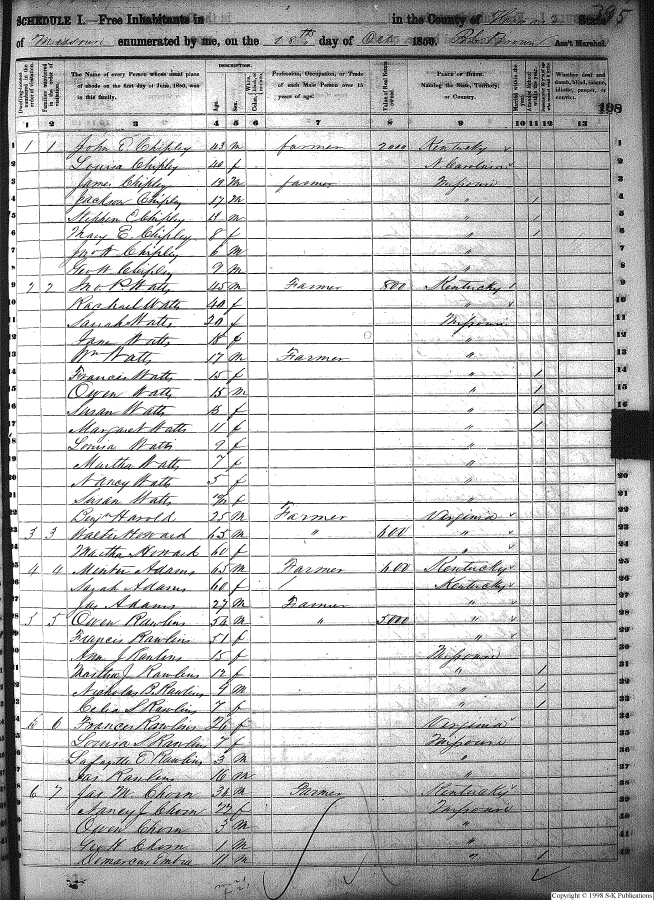 SCHEDULE I.—Free Inhabitants in in the County of State 395
of Missouri enumerated by me, on the 18th day of Oct 1850. Ass't Marshal.
The Name of every Person whose usual place of abode on the first day of June, 1850, was in this family.
DESCRIPTION.
Age. Sex.
Profession, Occupation, or Trade of each Male Person over 15 years of age.
Value of Real Estate owned.
PLACE OF BIRTH. Naming the State, Territory, or Country.
Whether deaf and dumb, blind, insane, idiotic, pauper, or convict.
198
1 2 3 4 5 6 7 8 9 10 11 12 13
1 1 John Chipley 43 M farmer 2000 Kentucky
Louisa Chipley 40 f N Carolina
James Chipley 19 M farmer Missouri
Jackson Chipley 17 M " 1
Stephen C Chipley 11 M " 1
Mary E. Chipley 8 f " 1
Jno H Chipley 6 M "
Geo H Chipley 9 M "
2 2 Jno. P Watts 45 M Farmer 800 Kentucky
Rachael Watts 40 f "
Sarah Watts 20 f Missouri
Jane Watts 18 f "
Wm Watts 17 M Farmer "
Francis Watts 15 f " 1
Owen Watts 15 M " 1
Susan Watts 13 f " 1
Margaret Watts 11 f " 1
Louisa Watts 9 f "
Martha Watts 7 f "
Nancy Watts 5 f "
Susan Watts f "
Benjn Harold 25 M Farmer Virginia
3 3 Walter Howard 65 M " 600 "
Martha Howard 60 f "
4 4 Adams 65 M Farmer 600 Kentucky
Sarah Adams 60 f Kentucky
Jas Adams 27 M Farmer "
5 5 Owen Rawlins 54 M " 5000 "
Francis Rawlins 51 f "
Ann J Rawlins 15 f Missouri
Martha J Rawlins 12 f " 1
Nicholas B. Rawlins 9 M " 1
Celia S Rawlins 7 f " 1
6 6 Frances Rawlins 26 f Virginia
Louisa S Rawlins 7 f Missouri
Lafayette Rawlins 3 M "
Jas. Rawlins 16 M "
6 7 Jas M. Chorn 34 M Farmer Kentucky
Nancy J. Chorn 22 f Missouri
Owen Chorn 3 M "
Geo H Chorn 1 M "
Demarcus Embra 11 M " 1
Copyright © 1998 S-K Publications